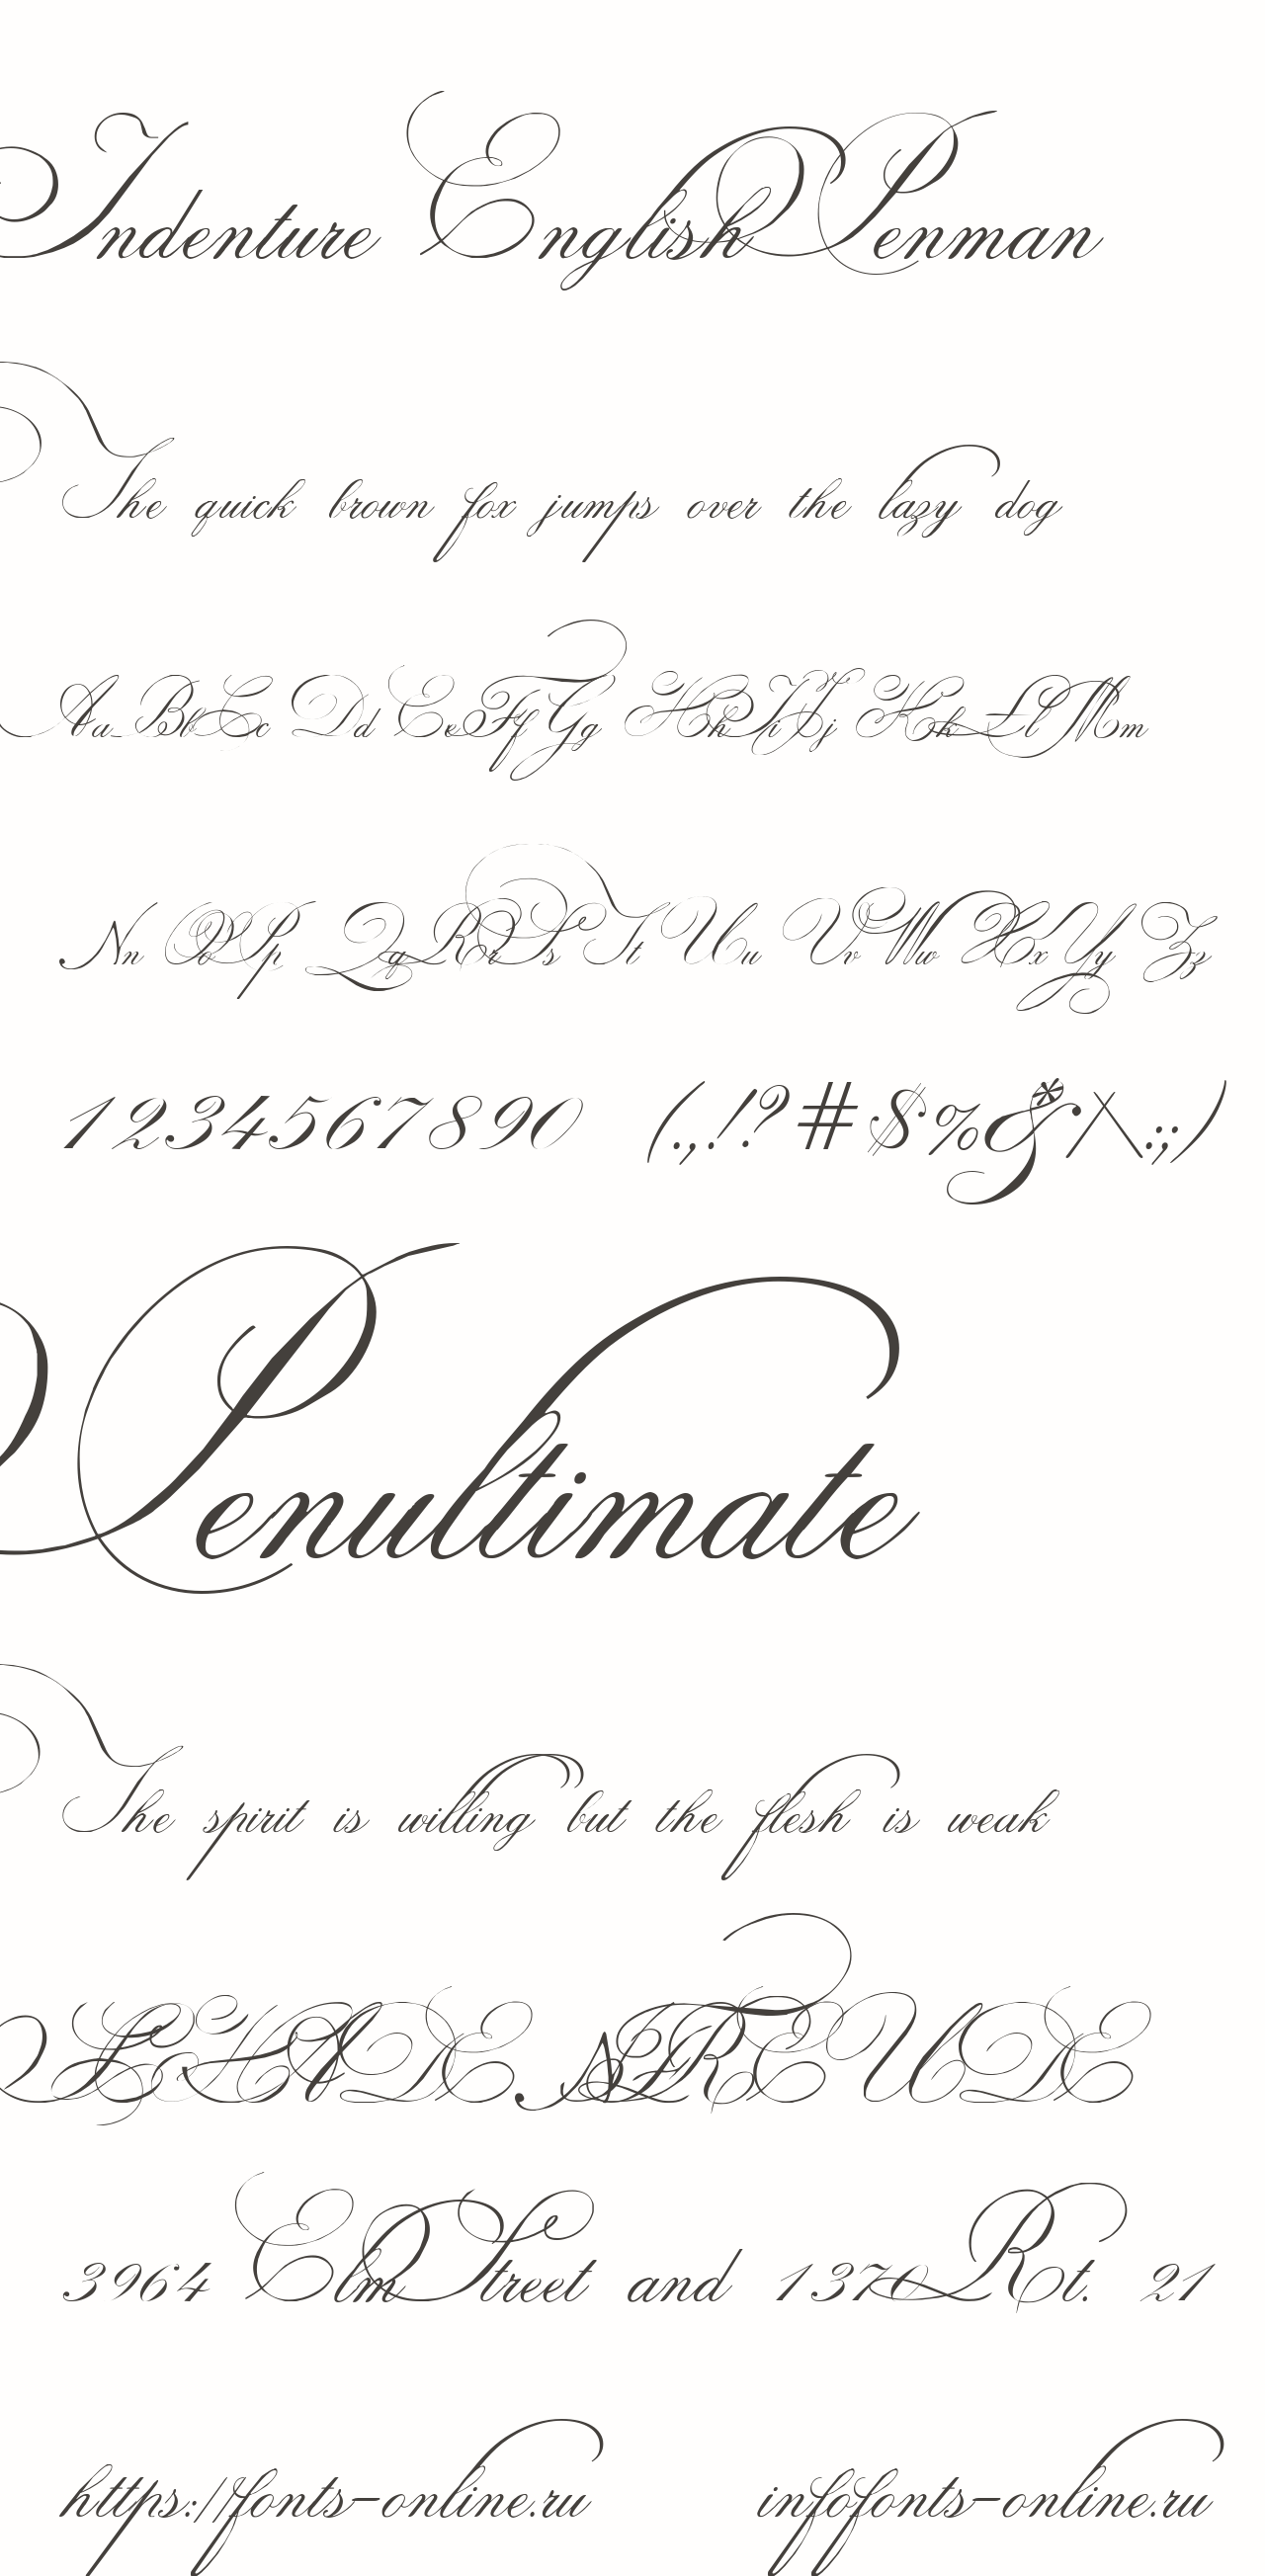 Indenture English Penman
The quick brown fox jumps over the lazy dog
Aa Bb Cc Dd Ee Ff Gg Hh Ii Jj Kk Ll Mm
Nn Oo Pp Qq Rr Ss Tt Uu Vv Ww Xx Yy Zz
1234567890 (.,!?#$%&*/\:;)
Penultimate
The spirit is willing but the flesh is weak
SCHADE NFREUDE
3964 Elm Street and 1370 Rt. 21
https://fonts-online.ru infofonts-online.ru